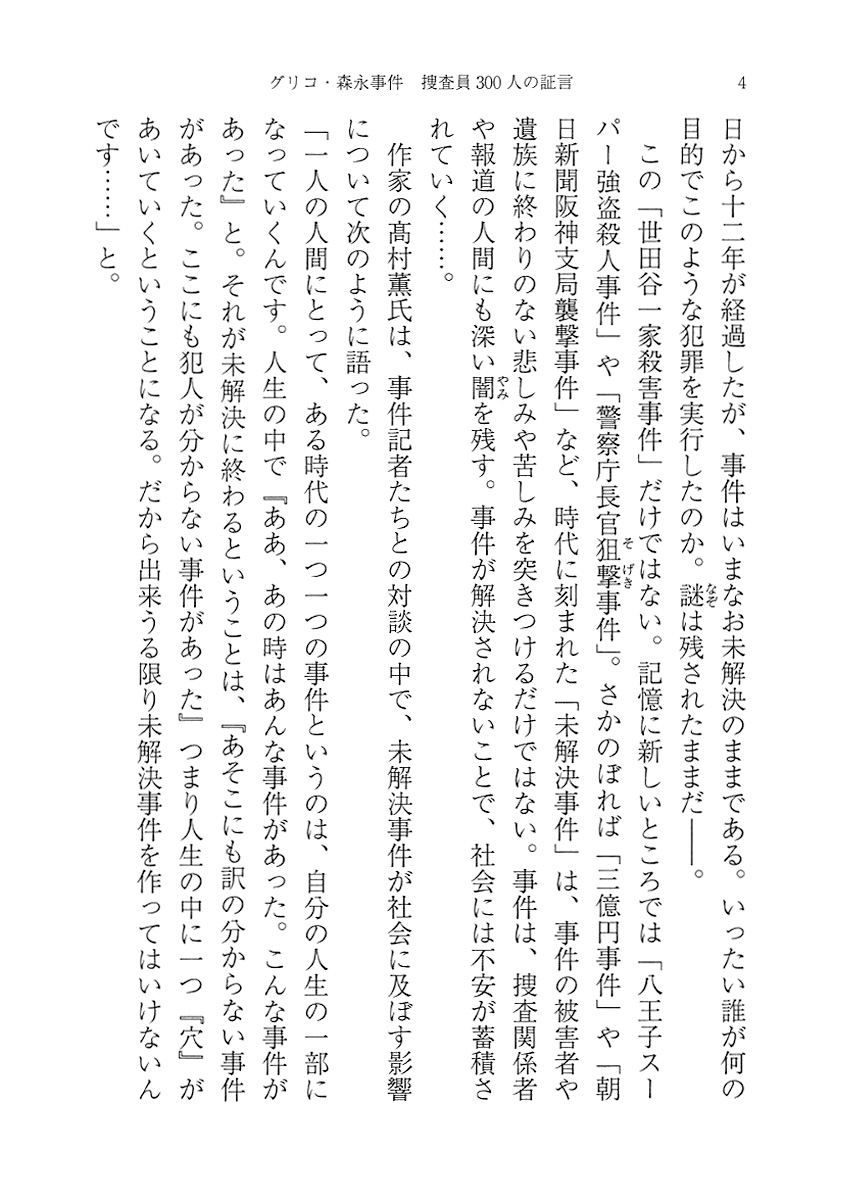 グリコ・森永事件　捜査員300人の証言
4
日から十二年が経過したが、事件はいまなお未解決のままである。いったい誰が何の
目的でこのような犯罪を実行したのか。謎は残されたままだ――。
　この「世田谷一家殺害事件」だけではない。記憶に新しいところでは「八王子スー
パー強盗殺人事件」や「警察庁長官狙撃事件」。さかのぼれば「三億円事件」や「朝
日新聞阪神支局襲撃事件」など、時代に刻まれた「未解決事件」は、事件の被害者や
遺族に終わりのない悲しみや苦しみを突きつけるだけではない。事件は、捜査関係者
や報道の人間にも深い闇を残す。事件が解決されないことで、社会には不安が蓄積さ
れていく……。
　作家の髙村薫氏は、事件記者たちとの対談の中で、未解決事件が社会に及ぼす影響
について次のように語った。
「一人の人間にとって、ある時代の一つ一つの事件というのは、自分の人生の一部に
なっていくんです。人生の中で『ああ、あの時はあんな事件があった。こんな事件が
あった』と。それが未解決に終わるということは、『あそこにも訳の分からない事件
があった。ここにも犯人が分からない事件があった』つまり人生の中に一つ『穴』が
あいていくということになる。だから出来うる限り未解決事件を作ってはいけないん
です……」と。